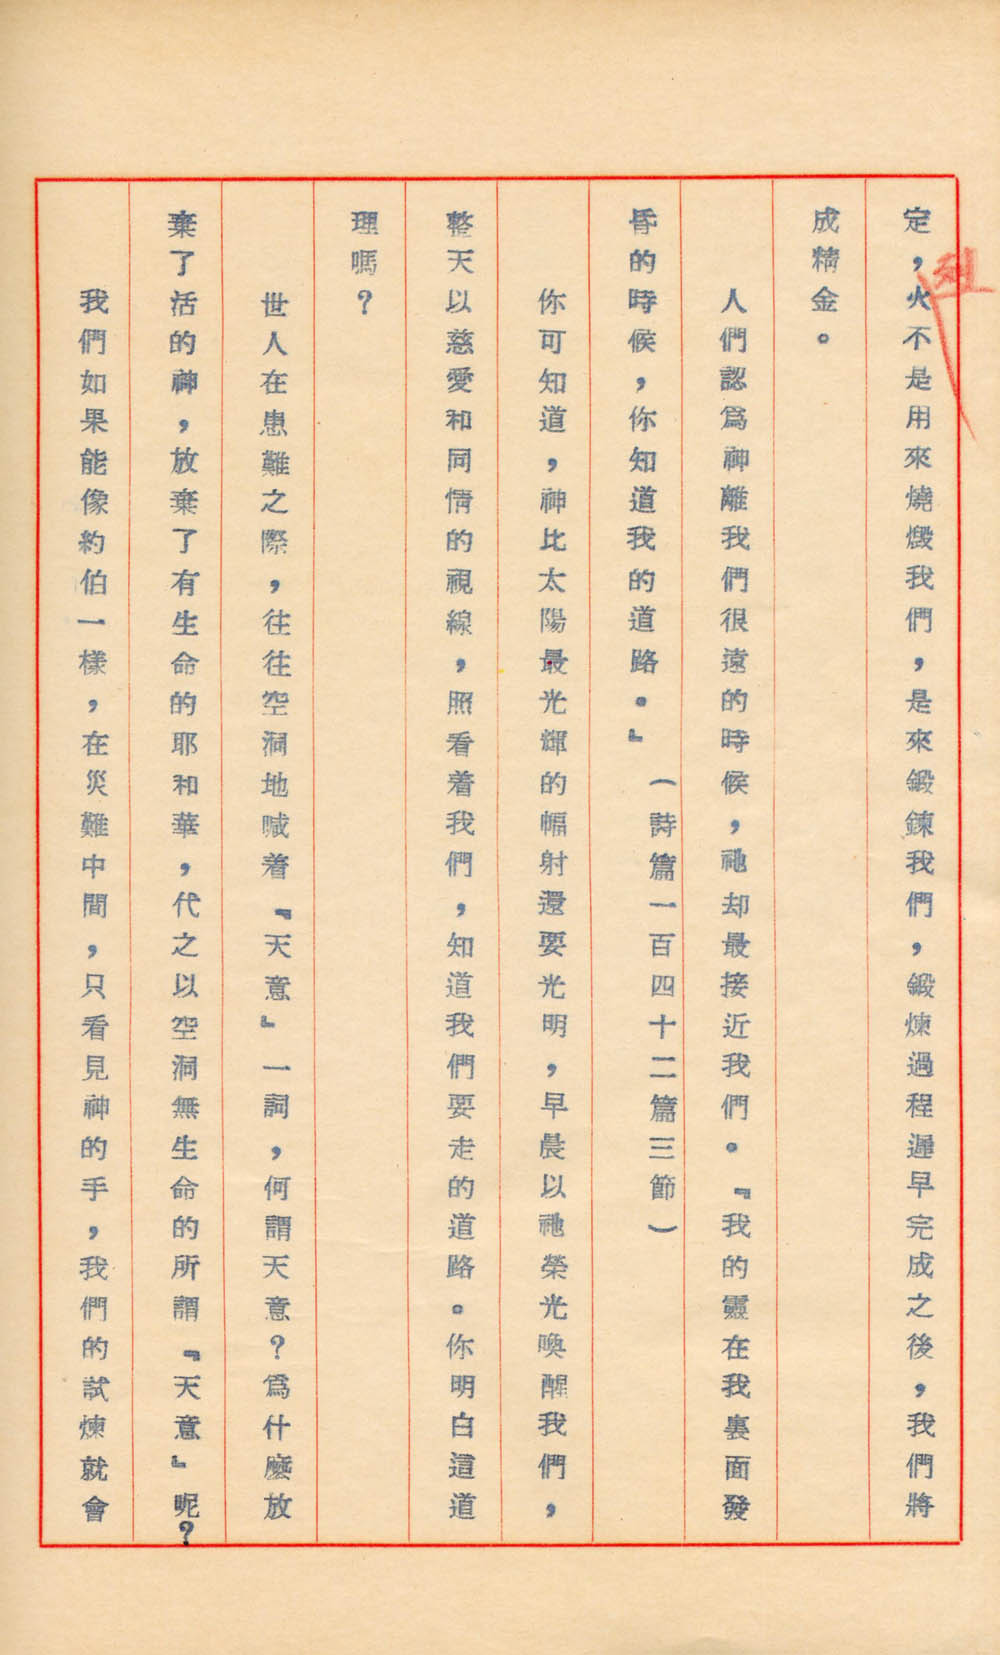 定，火不是用來燒燬我們，是來鍛鍊我們，鍛煉過程遲早完成之後，我們將
烈
成精金。
人們認爲神離我們很遠的時候，祂却最接近我們。『我的靈在我裏面發
昏的時候，你知道我的道路。』（詩篇一百四十二篇三節）
你可知道，神比太陽最光輝的幅射還要光明，早晨以祂榮光喚醒我們，
整天以慈愛和同情的視線，照看着我們，知道我們要走的道路。你明白這道
理嗎？
世人在患難之際，往往空洞地喊着『天意』一詞，何謂天意？爲什麼放
棄了活的神，放棄了有生命的耶和華，代之以空洞無生命的所謂『天意』呢？
我們如果能像約伯一樣，在災難中間，只看見神的手，我們的試煉就會